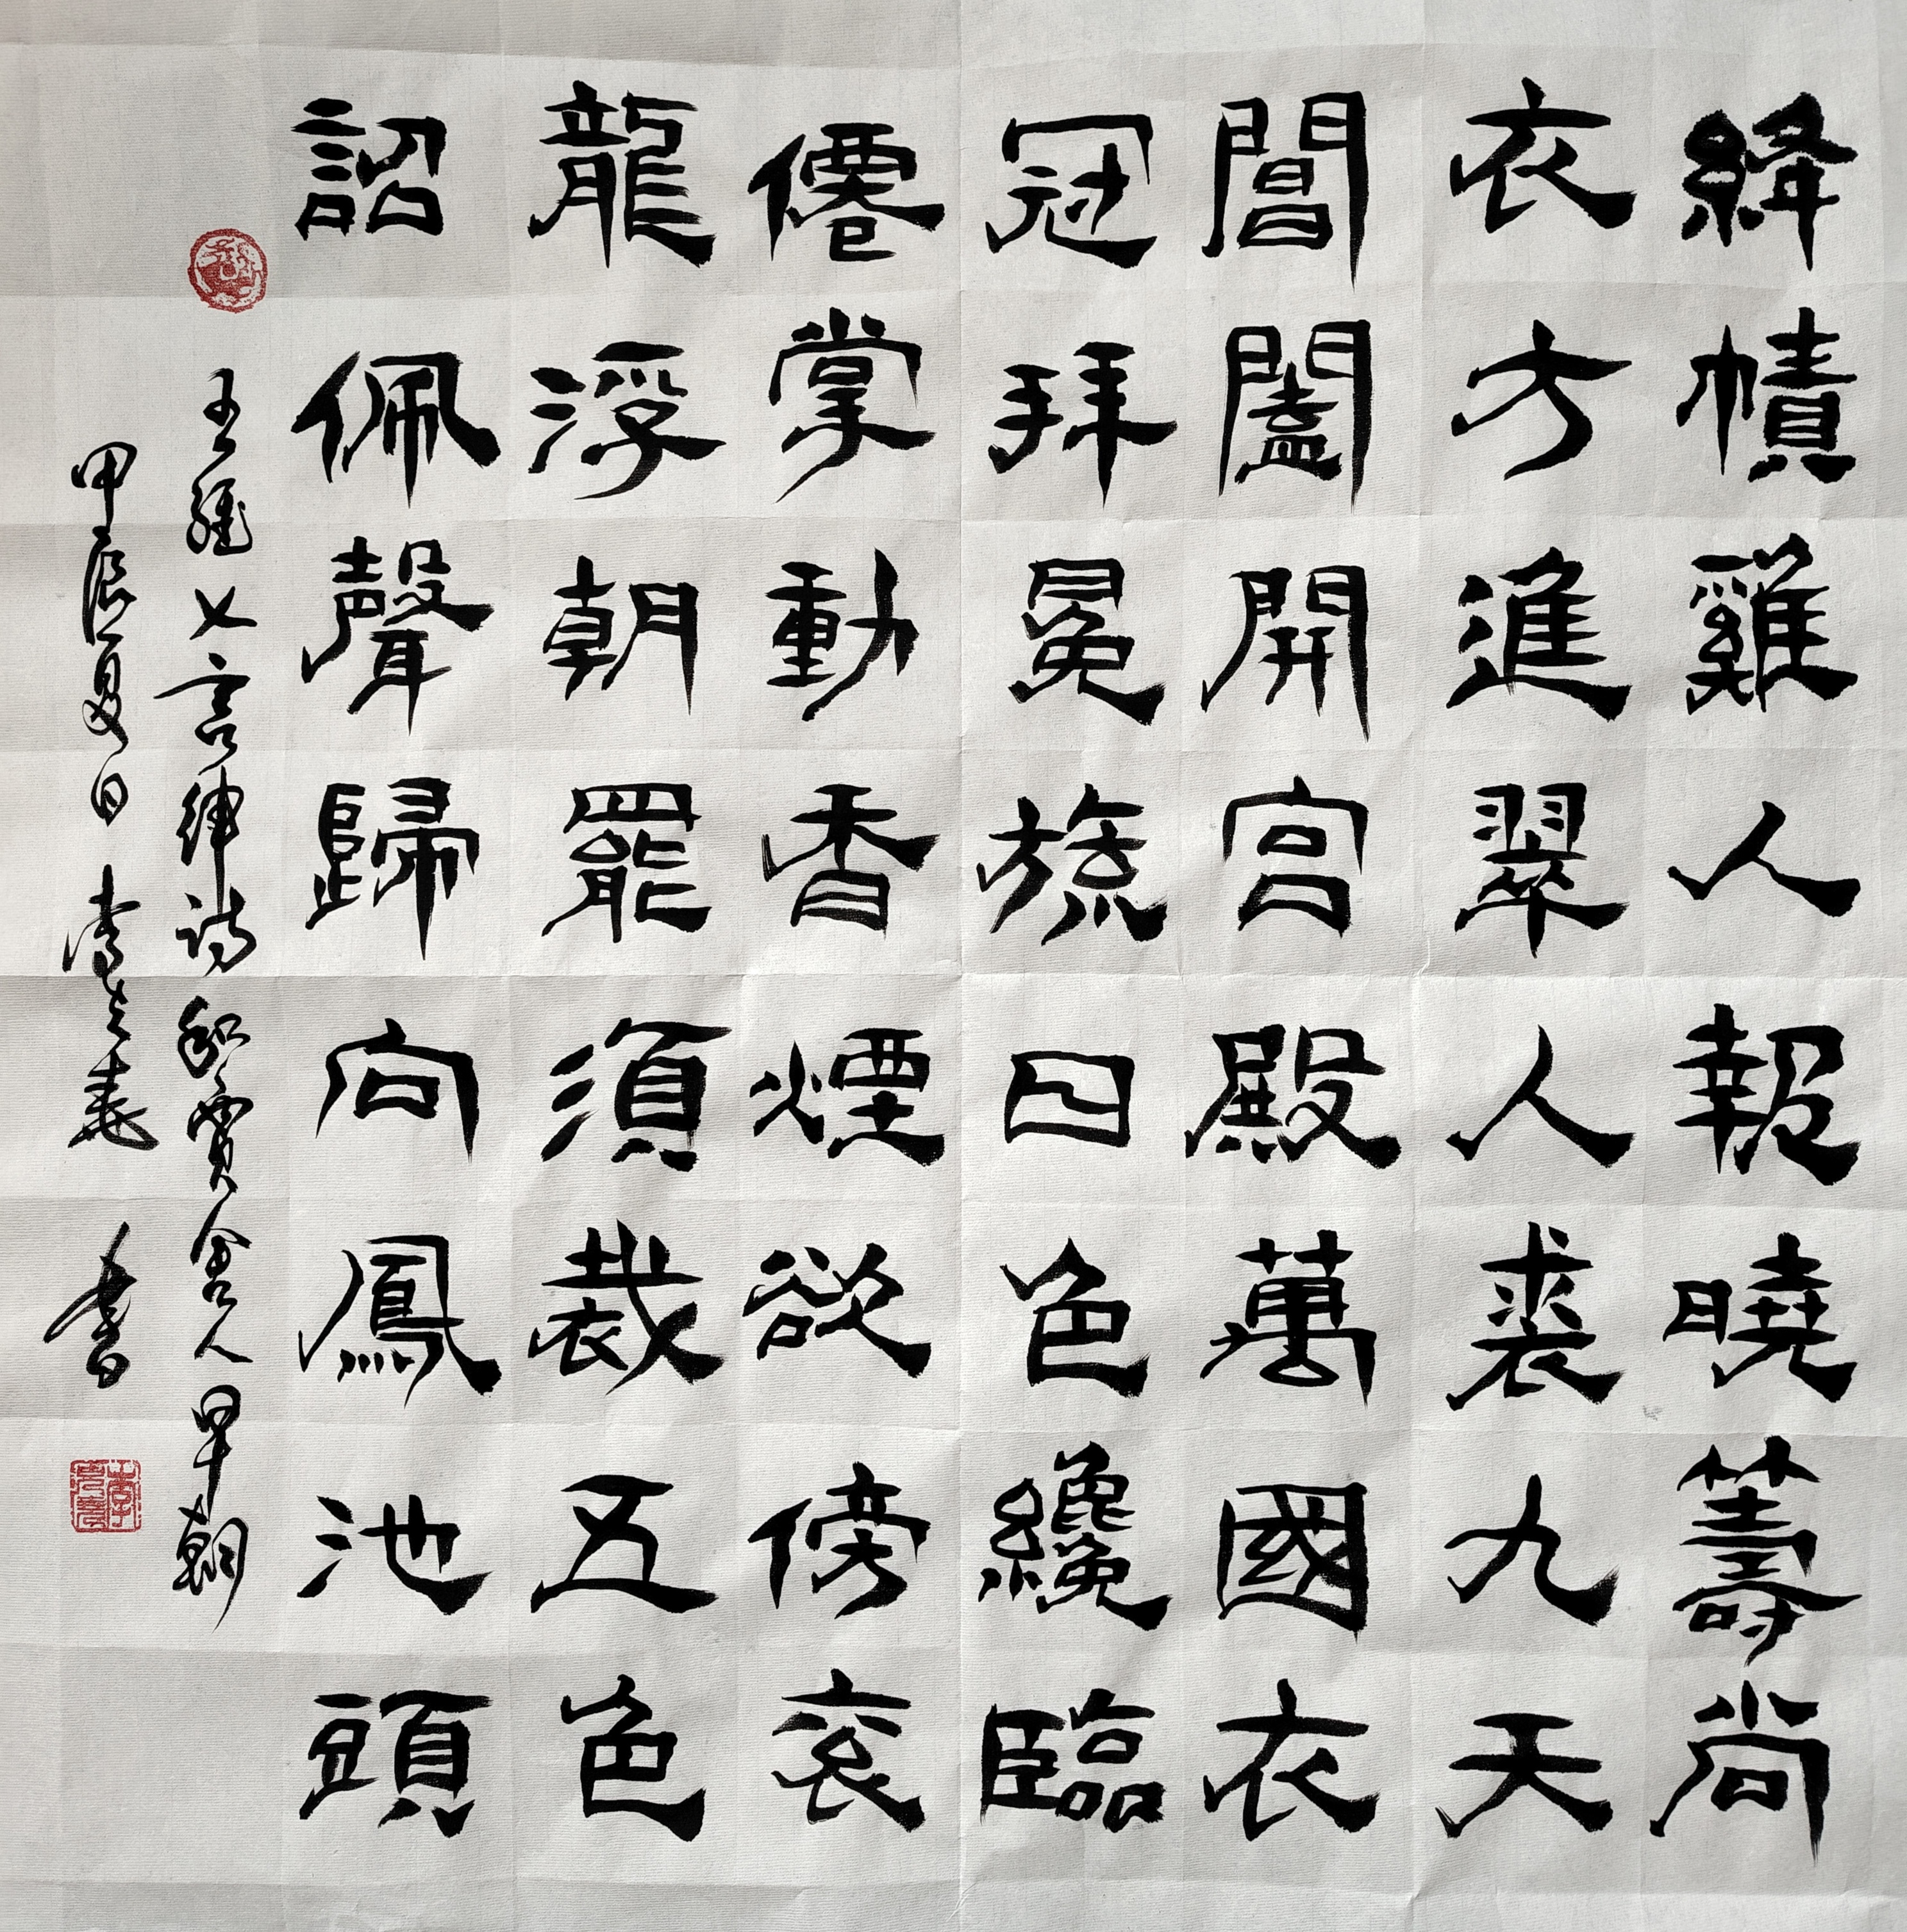 絳幘雞人報曉籌尚
衣方進翠人裘九天
閶闔開宮殿萬國衣
冠拜冕旒日色纔臨
僊掌動香煙欲傍袞
龍浮朝罷須裁五色
詔佩聲歸向鳳池頭
王維七言律詩和賈舍人早朝
甲辰夏日書